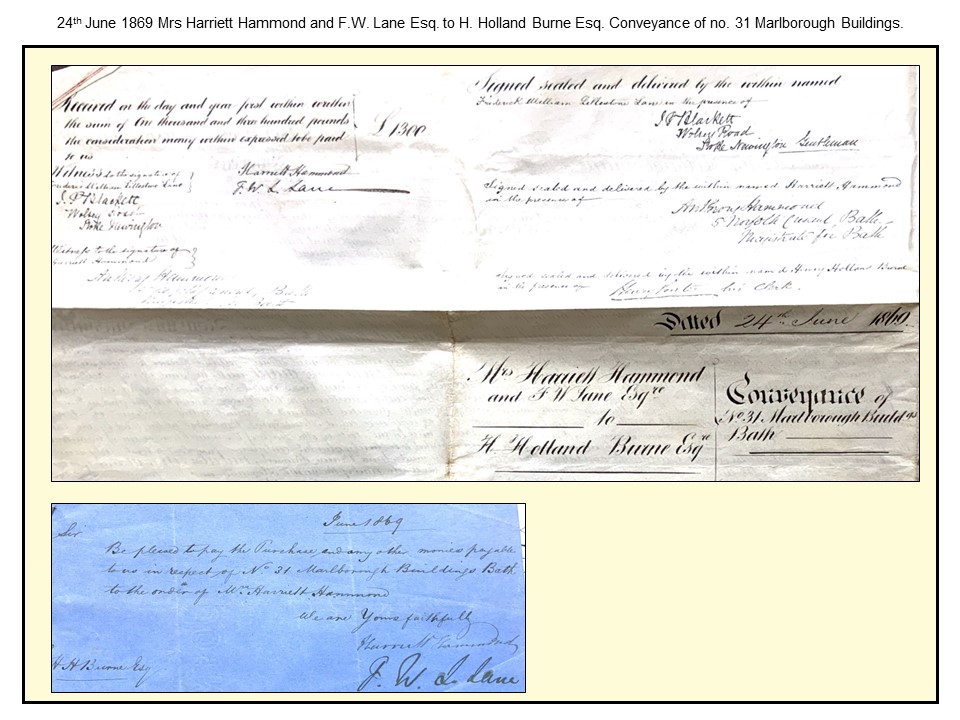 24th June 1869 Mrs Harriett Hammond and F.W. Lane Esq. to H. Holland Burne Esq. Conveyance of no. 31 Marlborough Buildings.
Received on the day and year first within written
the sum of One thousand and three hundred pounds
the consideration money within expressed to be paid
to us
£1300
Harriett Hammond
F. W. L. Lane
Witness to the signature of
Frederick William Lane
J P Blackett
Wolsey Road
Stoke Newington
Witness to the signature of
Harriett Hammond
Hammond
Bath
Signed sealed and delivered by the within named
Frederick William Lane in the presence of
J P Blackett
Wolsey Road
Stoke Newington Gentleman
Signed sealed and delivered by the within named Harriett Hammond
in the presence of
Anthony Hammond
5 Norfolk Crescent Bath
Magistrate for Bath
Signed sealed and delivered by the within named Henry Holland Burne
in the presence of
Henry his Clerk.
Dated 24th June 1869.
Mrs Harriett Hammond
and F W Lane Esqre
to
H. Holland Burne Esqre
Conveyance of
No. 31 Marlborough Buildgs
Bath
June 1869
Sir
Be pleased to pay the Purchase and any other monies payable
to us in respect of No 31 Marlborough Buildings Bath
to the order of Mrs Harriett Hammond
We are Yours faithfully
Harriett Hammond
F. W. L. Lane
H H Burne Esq